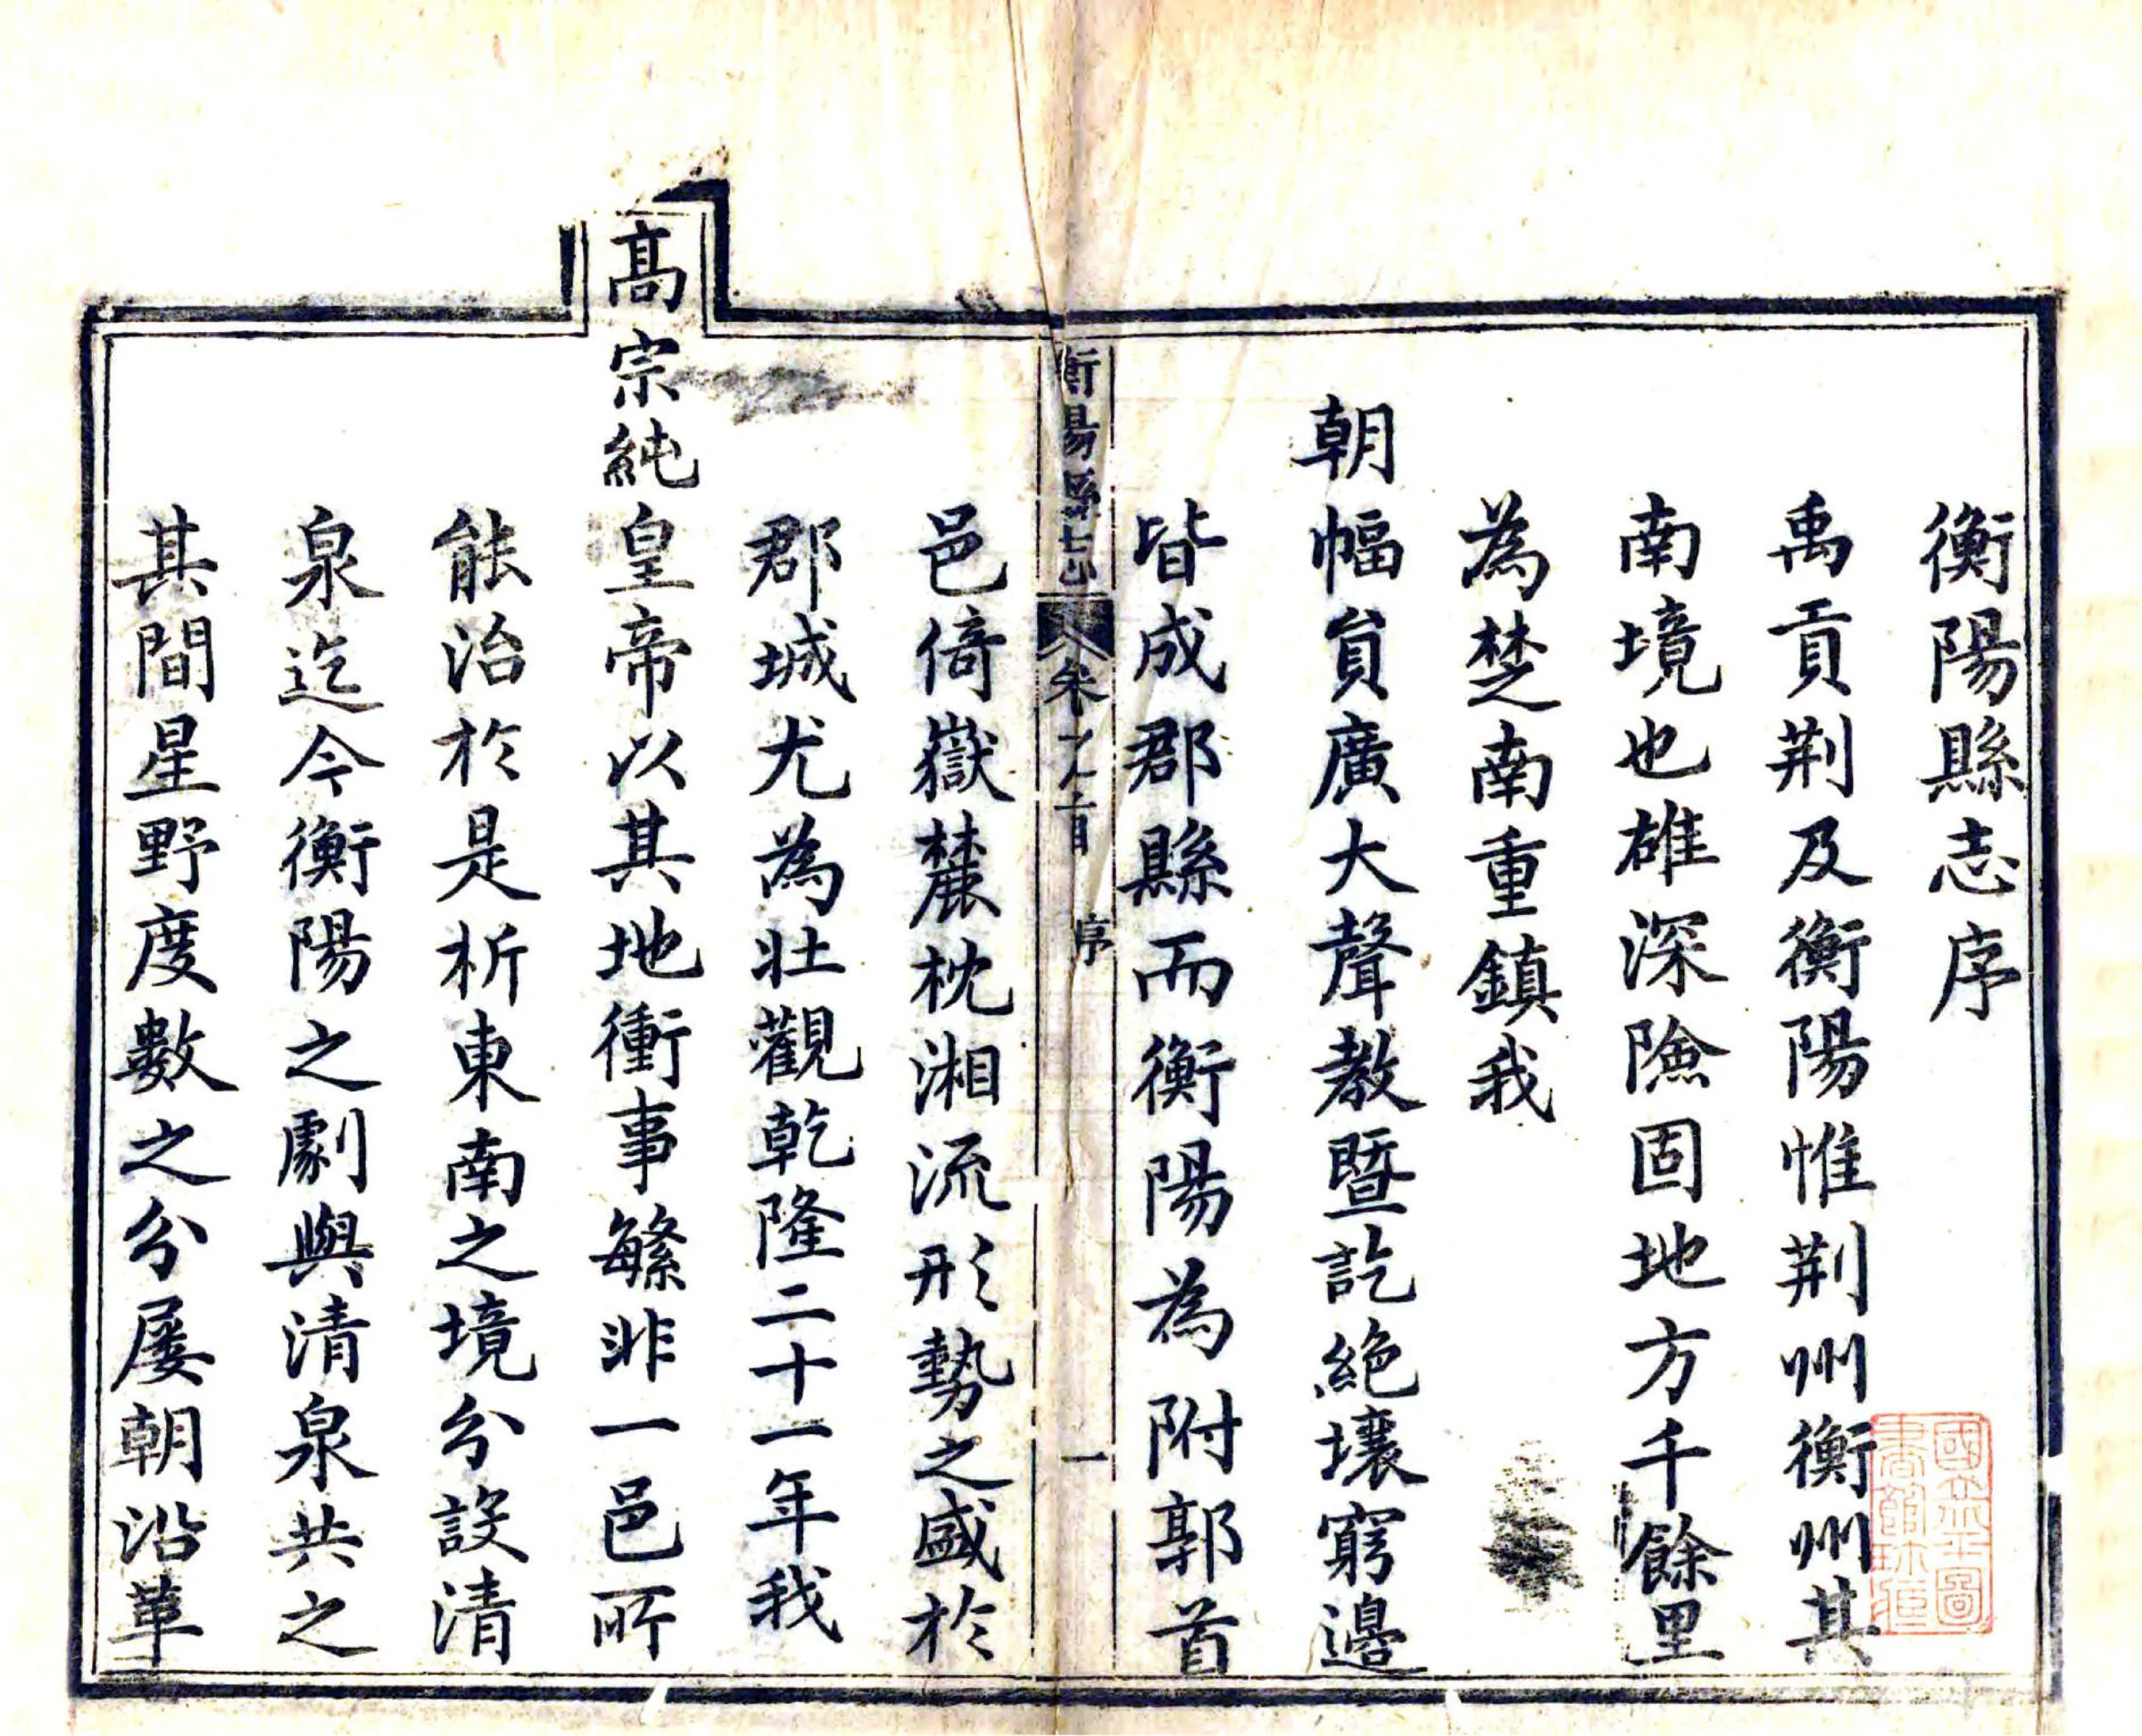 衡陽縣志序
禹貢荆及衡陽惟荆州衡州其
南境也雄深險固地方千餘里
為楚南重鎮我
朝幅員廣大聲教暨訖絶壤窮邊
皆成郡縣而衡陽為附郭首
衡陽縣志
卷之首
序
一
邑倚嶽麓枕湘流形勢之盛於
郡城尤為壯觀乾隆二十一年我
髙宗純皇帝以其地衝事繁非一邑所
能治於是析東南之境分設清
泉迄今衡陽之劇與清泉共之
其間星野度數之分屢朝沿革
國立北平圖
書館珍藏